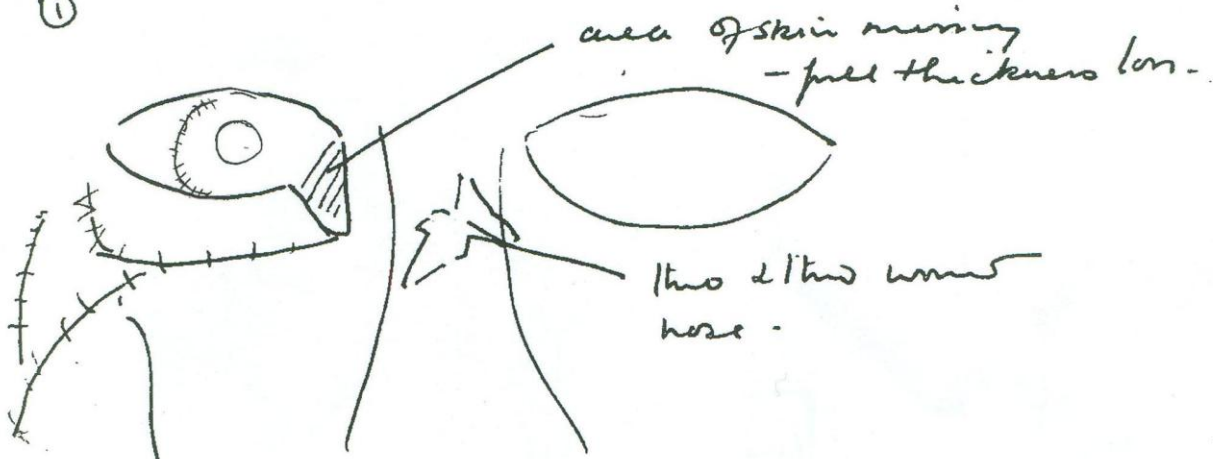 ①
area of skin missing
- full thickness loss.
thro & thro wound
nose.